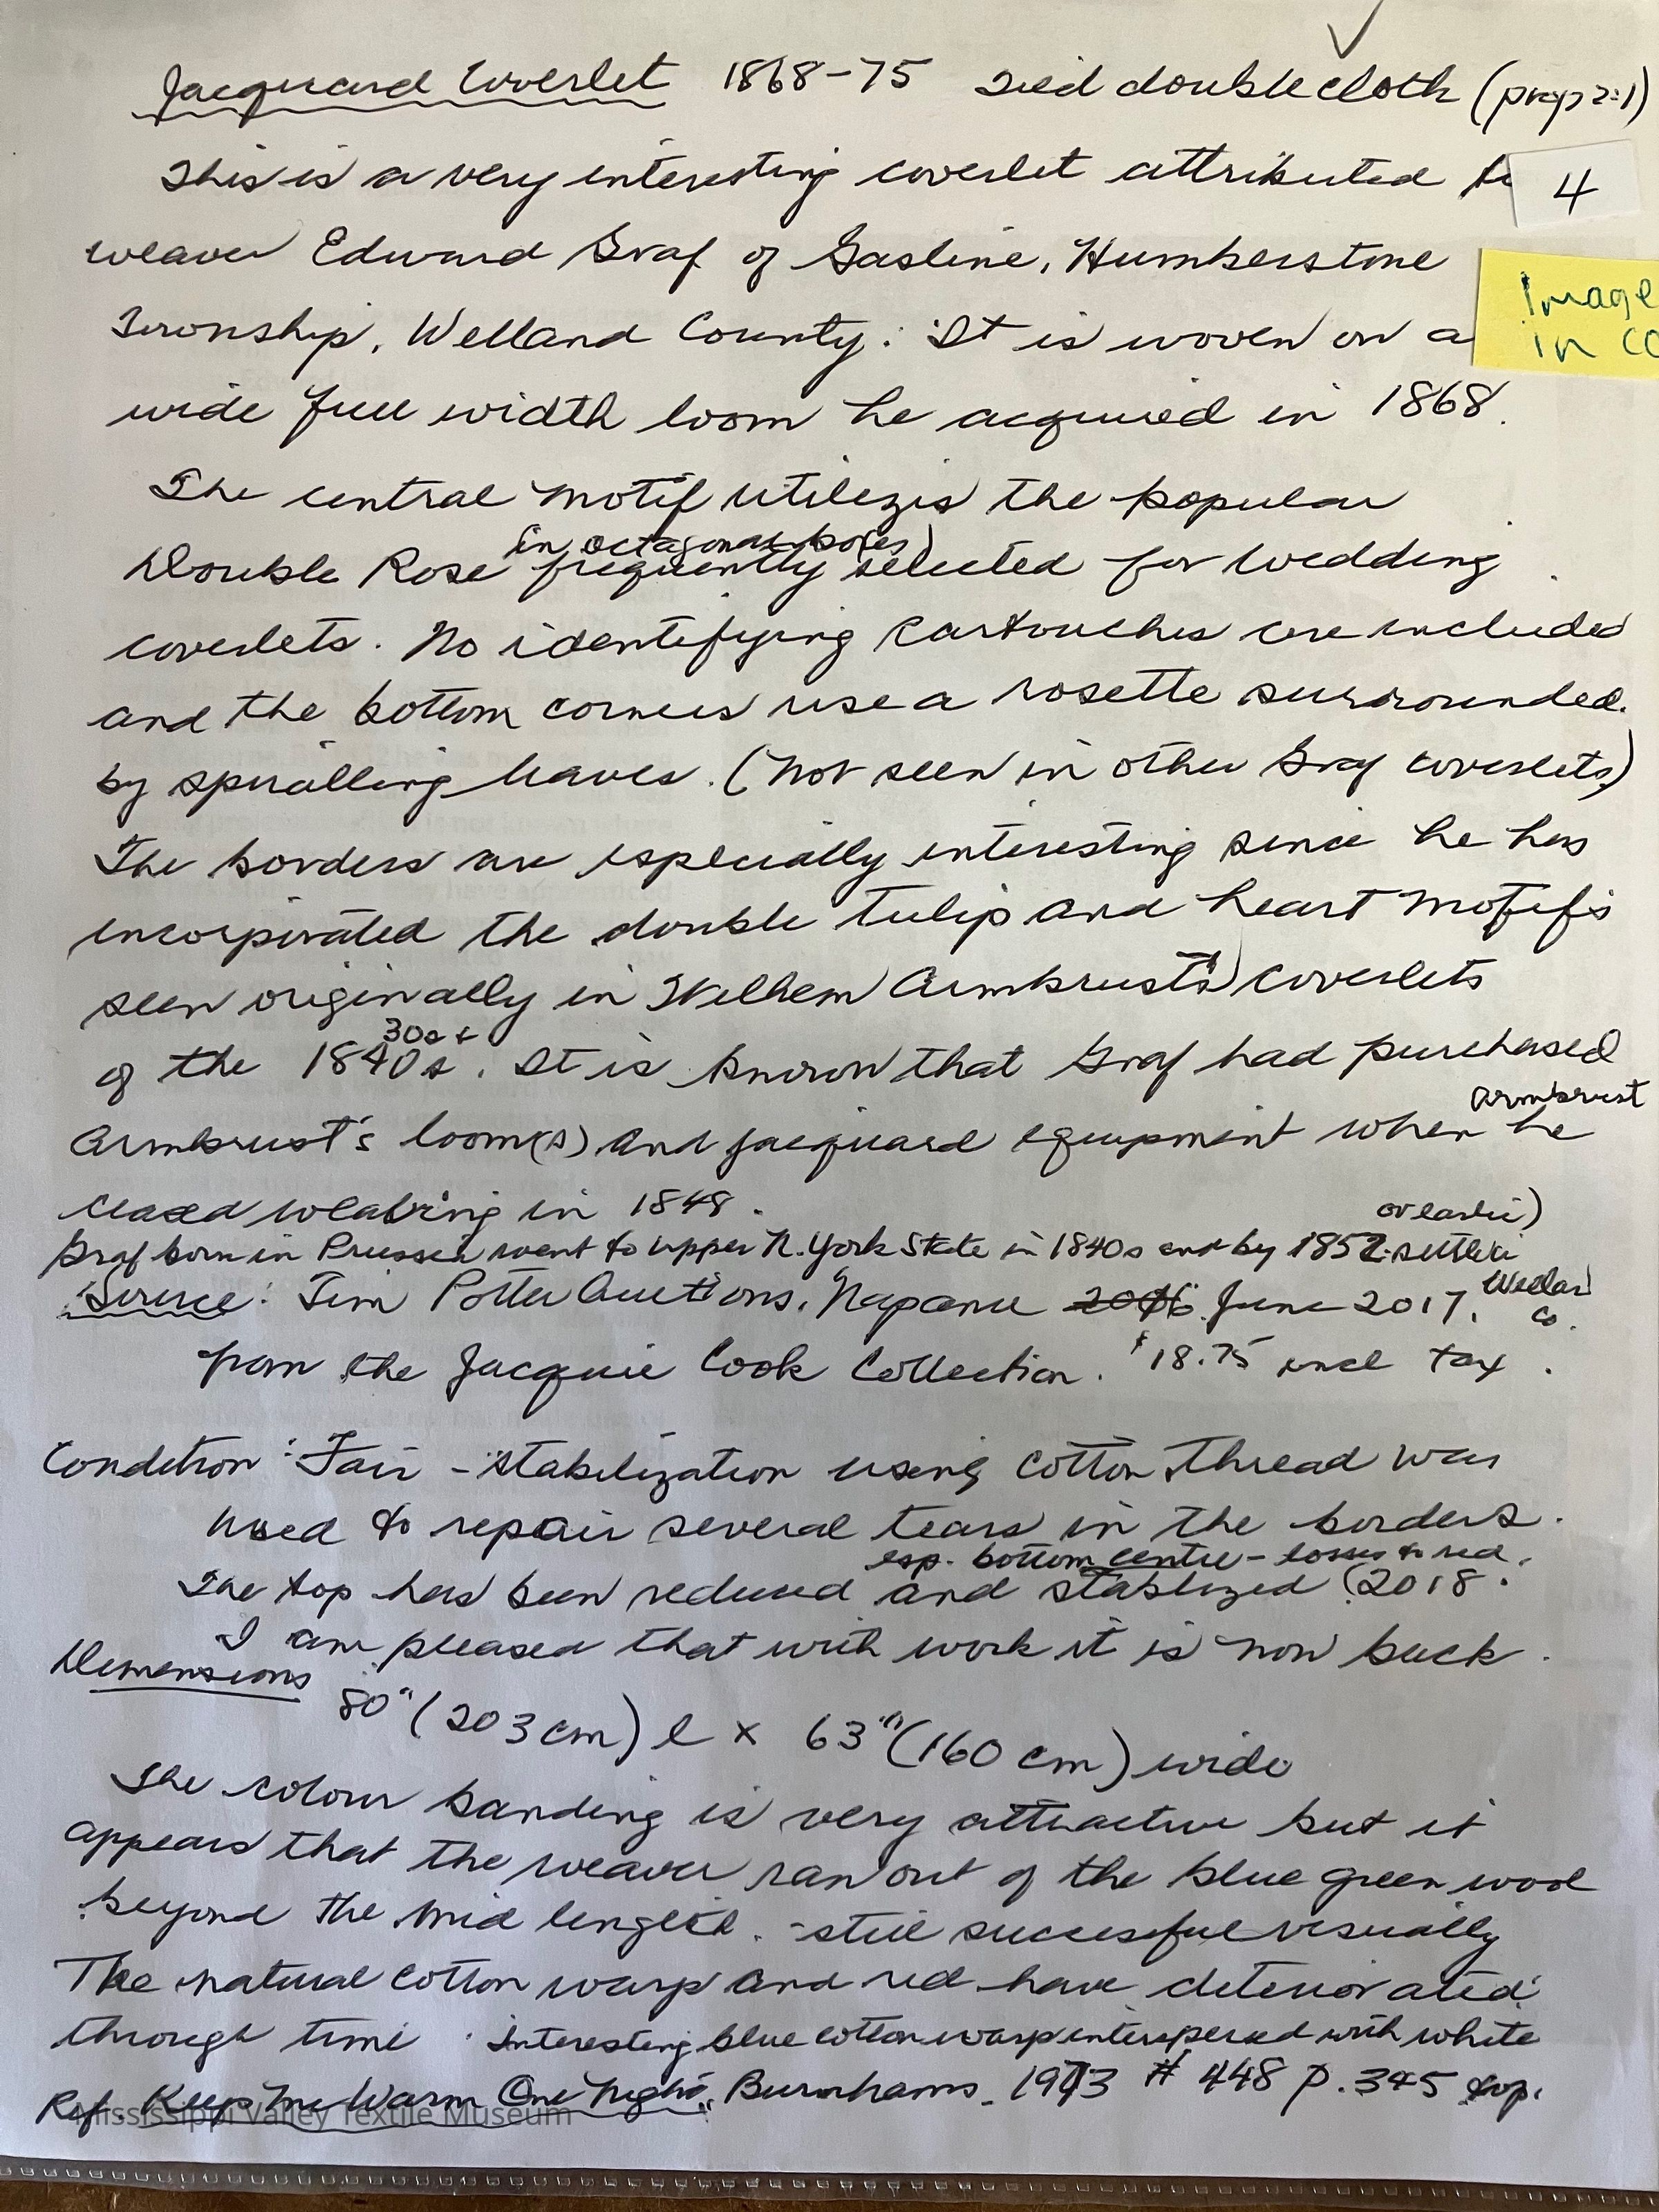 Jacquard Coverlet 1868-75 Tied doublecloth (prop 2:1)
This is a very interesting coverlet attributed to
4
weaver Edward Graf of Gasline, Humberstone
Image
in CO
Township, Welland County. It is woven on a
wide full width loom he acquired in 1868.
The central motif utilizes the popular
(in octagonal boxes)
Double Rose frequently selected for wedding
coverlets. No identifying cartouches are included
and the bottom corners use a rosette surrounded.
by spiralling leaves. (Not seen in other Graf coverlets)
The borders are especially interesting since he has
incorporated the double tulip and heart motifs
seen originally in Wilhem Armbrust's coverlets
30s +
of the 1840s. It is known that Graf had purchased
Armbrust
Armbrust's loom(s) and jacquard equipment when he
ceased weaving in 1848.
or earlier)
Graf born in Prussia went to upper N. York State in 1840s and by 1852 settled in
Welland Co.
Source: Jim Potter Auctions, Napanee 2016 June 2017.
from the Jacquie Cook Collection. $18.75 incl tax.
Condition: Fair - stabilization using cotton thread was
used to repair several tears in the borders.
esp. bottom centre - losses to red.
The top has been reduced and stablized (2018.
I am pleased that with work it is now back.
Dimensions
80" (203 cm) l x 63" (160 cm) wide
The colour banding is very attractive but it
appears that the weaver ran out of the blue green wool
beyond the mid length. - still succesful visually
The natural cotton warp and red have deteriorated
through time. Interesting blue cotton warp interspersed with white
Ref. Keep Me Warm One Night, Burnhams. 1973 # 448 p. 345 top.
Mississippi Valley Textile Museum